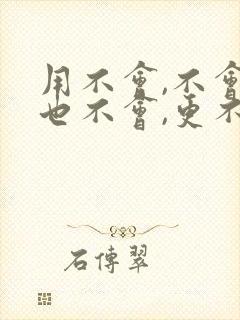 用不會,不會
也不會,更不
石傳翠